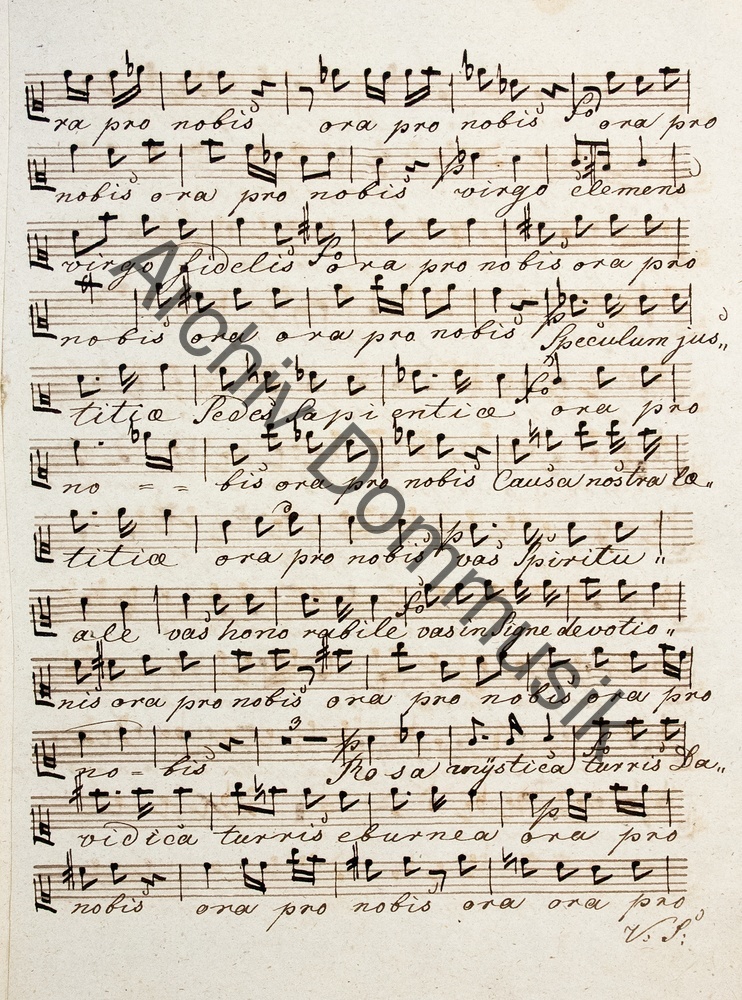 ra pro nobis ora pro nobis fo ora pro
nobis ora pro nobis p virgo clemens
virgo fidelis fo ora pro nobis ora pro
nobis ora ora pro nobis p Speculum jus„
titiæ Sedes Sapientiæ fo ora pro
no = = bis ora pro nobis Causa nostra læ„
titiæ ora pro nobis p vas Spiritu„
ale vas honorabile fo vas in Signe devotio„
nis ora pro nobis ora pro nobis ora pro
no = bis 3 p Rosa mÿstica fo turris Da„
vidica turris eburnea p ora pro
nobis ora pro nobis ora ora pro
V: S:
Archiv Dommusik